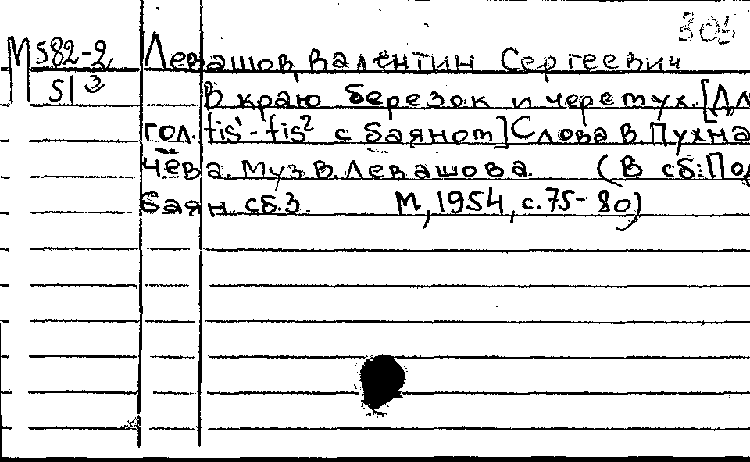 305
М 582-2 Левашов, Валентин Сергеевич
513 В краю березок и черемух. [Дл
гол. fis¹-fis² с баяном] Слова В. Пухна
чёва. Муз. В. Левашова. (В сб.: Под
баян. сб.3. М., 1954, с. 75-80)